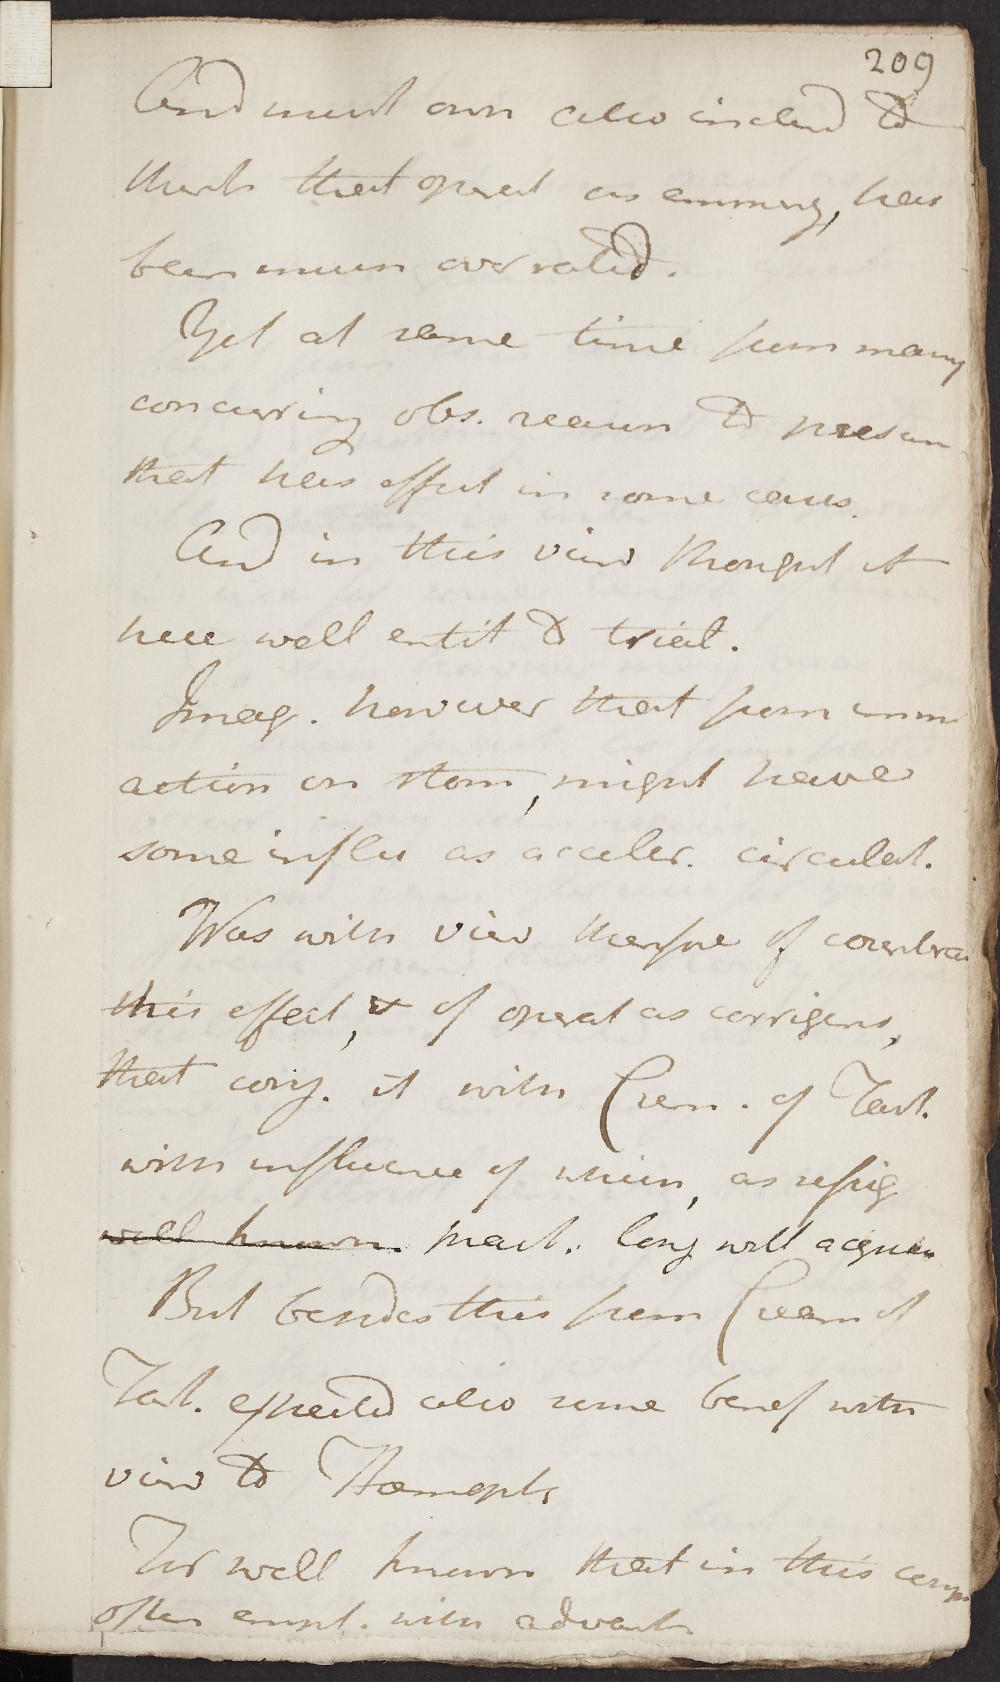 209
And must own also inclined to
think that operat as emmenag, has
been much overrated.
Yet at same time from many
concurring obs. reason to presum
that has effect in some cases.
And in this view thought it
here well entit to trial.
Imag. however that from imm
action on stom, might have
some influ as acceler. circulat.
Was with view therefore of counterac
this effect, & of operat as corrigens,
that conj. it with Crem. of Tart.
with influence of which, as refrig
well known. pract. long well acquain
But besides this from Cream of
Tart. expected also some benef with
view to Haemopt.
For well known that in this comp
often empl. with advant